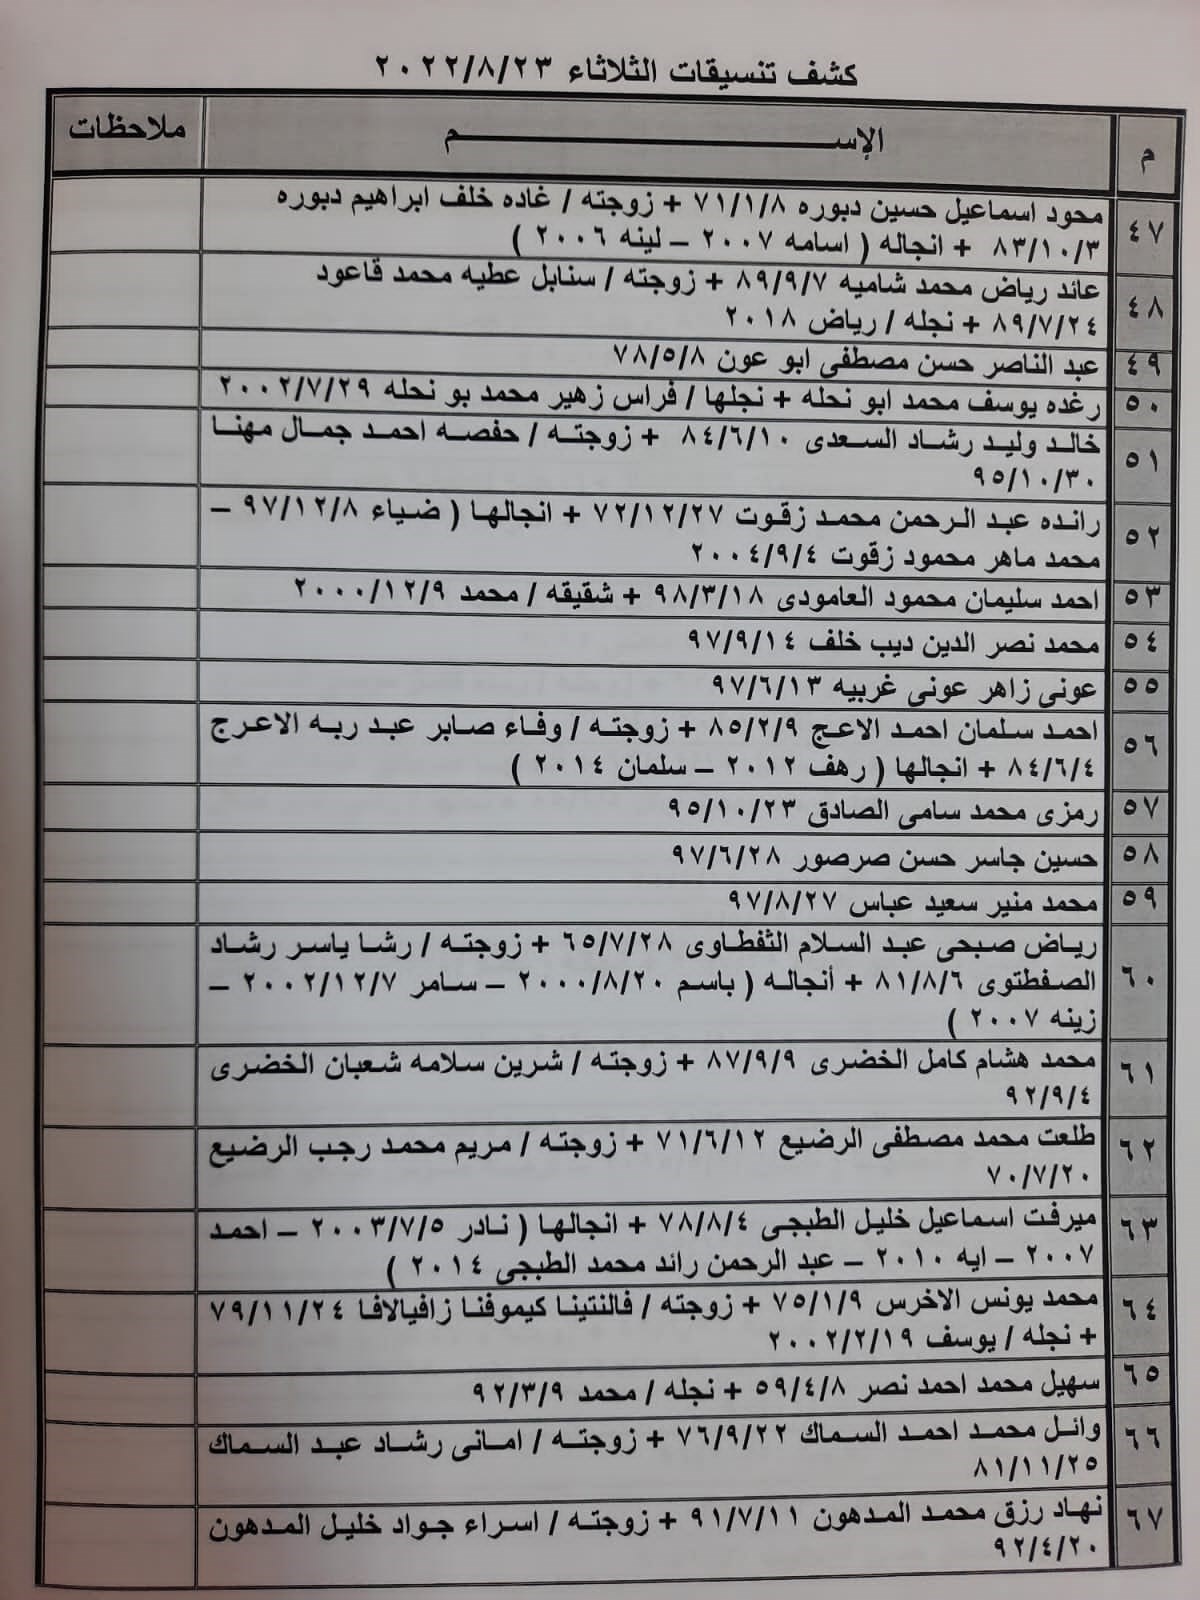 كشف تنسيقات الثلاثاء ٢٠٢٢/٨/٢٣
م الإسم ملاحظات
٤٧ محود اسماعيل حسين دبوره ٧١/١/٨ + زوجته / غاده خلف ابراهيم دبوره
٨٣/١٠/٣ + انجاله ( اسامه ٢٠٠٧ – لينه ٢٠٠٦ )
٤٨ عائد رياض محمد شاميه ٨٩/٩/٧ + زوجته / سنابل عطيه محمد قاعود
٨٩/٧/٢٤ + نجله / رياض ٢٠١٨
٤٩ عبد الناصر حسن مصطفى ابو عون ٧٨/٥/٨
٥٠ رغده يوسف محمد ابو نحله + نجلها / فراس زهير محمد بو نحله ٢٠٠٢/٧/٢٩
٥١ خالد وليد رشاد السعدى ٨٤/٦/١٠ + زوجته / حفصه احمد جمال مهنا
٩٥/١٠/٣٠
٥٢ رانده عبد الرحمن محمد زقوت ٧٢/١٢/٢٧ + انجالها ( ضياء ٩٧/١٢/٨ –
محمد ماهر محمود زقوت ٢٠٠٤/٩/٤
٥٣ احمد سليمان محمود العامودى ٩٨/٣/١٨ + شقيقه / محمد ٢٠٠٠/١٢/٩
٥٤ محمد نصر الدين ديب خلف ٩٧/٩/١٤
٥٥ عونى زاهر عونى غربيه ٩٧/٦/١٣
٥٦ احمد سلمان احمد الاعج ٨٥/٢/٩ + زوجته / وفاء صابر عبد ربه الاعرج
٨٤/٦/٤ + انجالها ( رهف ٢٠١٢ – سلمان ٢٠١٤ )
٥٧ رمزى محمد سامى الصادق ٩٥/١٠/٢٣
٥٨ حسين جاسر حسن صرصور ٩٧/٦/٢٨
٥٩ محمد منير سعيد عباس ٩٧/٨/٢٧
٦٠ رياض صبحى عبد السلام الثفطاوى ٦٥/٧/٢٨ + زوجته / رشا ياسر رشاد
الصفطتوى ٨١/٨/٦ + أنجاله ( باسم ٢٠٠٠/٨/٢٠ – سامر ٢٠٠٢/١٢/٧ –
زينه ٢٠٠٧ )
٦١ محمد هشام كامل الخضرى ٨٧/٩/٩ + زوجته / شرين سلامه شعبان الخضرى
٩٢/٩/٤
٦٢ طلعت محمد مصطفى الرضيع ٧١/٦/١٢ + زوجته / مريم محمد رجب الرضيع
٧٠/٧/٢٠
٦٣ ميرفت اسماعيل خليل الطبجى ٧٨/٨/٤ + انجالها ( نادر ٢٠٠٣/٧/٥ – احمد
٢٠٠٧ – ايه ٢٠١٠ – عبد الرحمن رائد محمد الطبجى ٢٠١٤ )
٦٤ محمد يونس الاخرس ٧٥/١/٩ + زوجته / فالنتينا كيموفنا زافيالافا ٧٩/١١/٢٤
+ نجله / يوسف ٢٠٠٢/٢/١٩
٦٥ سهيل محمد احمد نصر ٥٩/٤/٨ + نجله / محمد ٩٢/٣/٩
٦٦ وائل محمد احمد السماك ٧٦/٩/٢٢ + زوجته / امانى رشاد عبد السماك
٨١/١١/٢٥
٦٧ نهاد رزق محمد المدهون ٩١/٧/١١ + زوجته / اسراء جواد خليل المدهون
٩٢/٤/٢٠